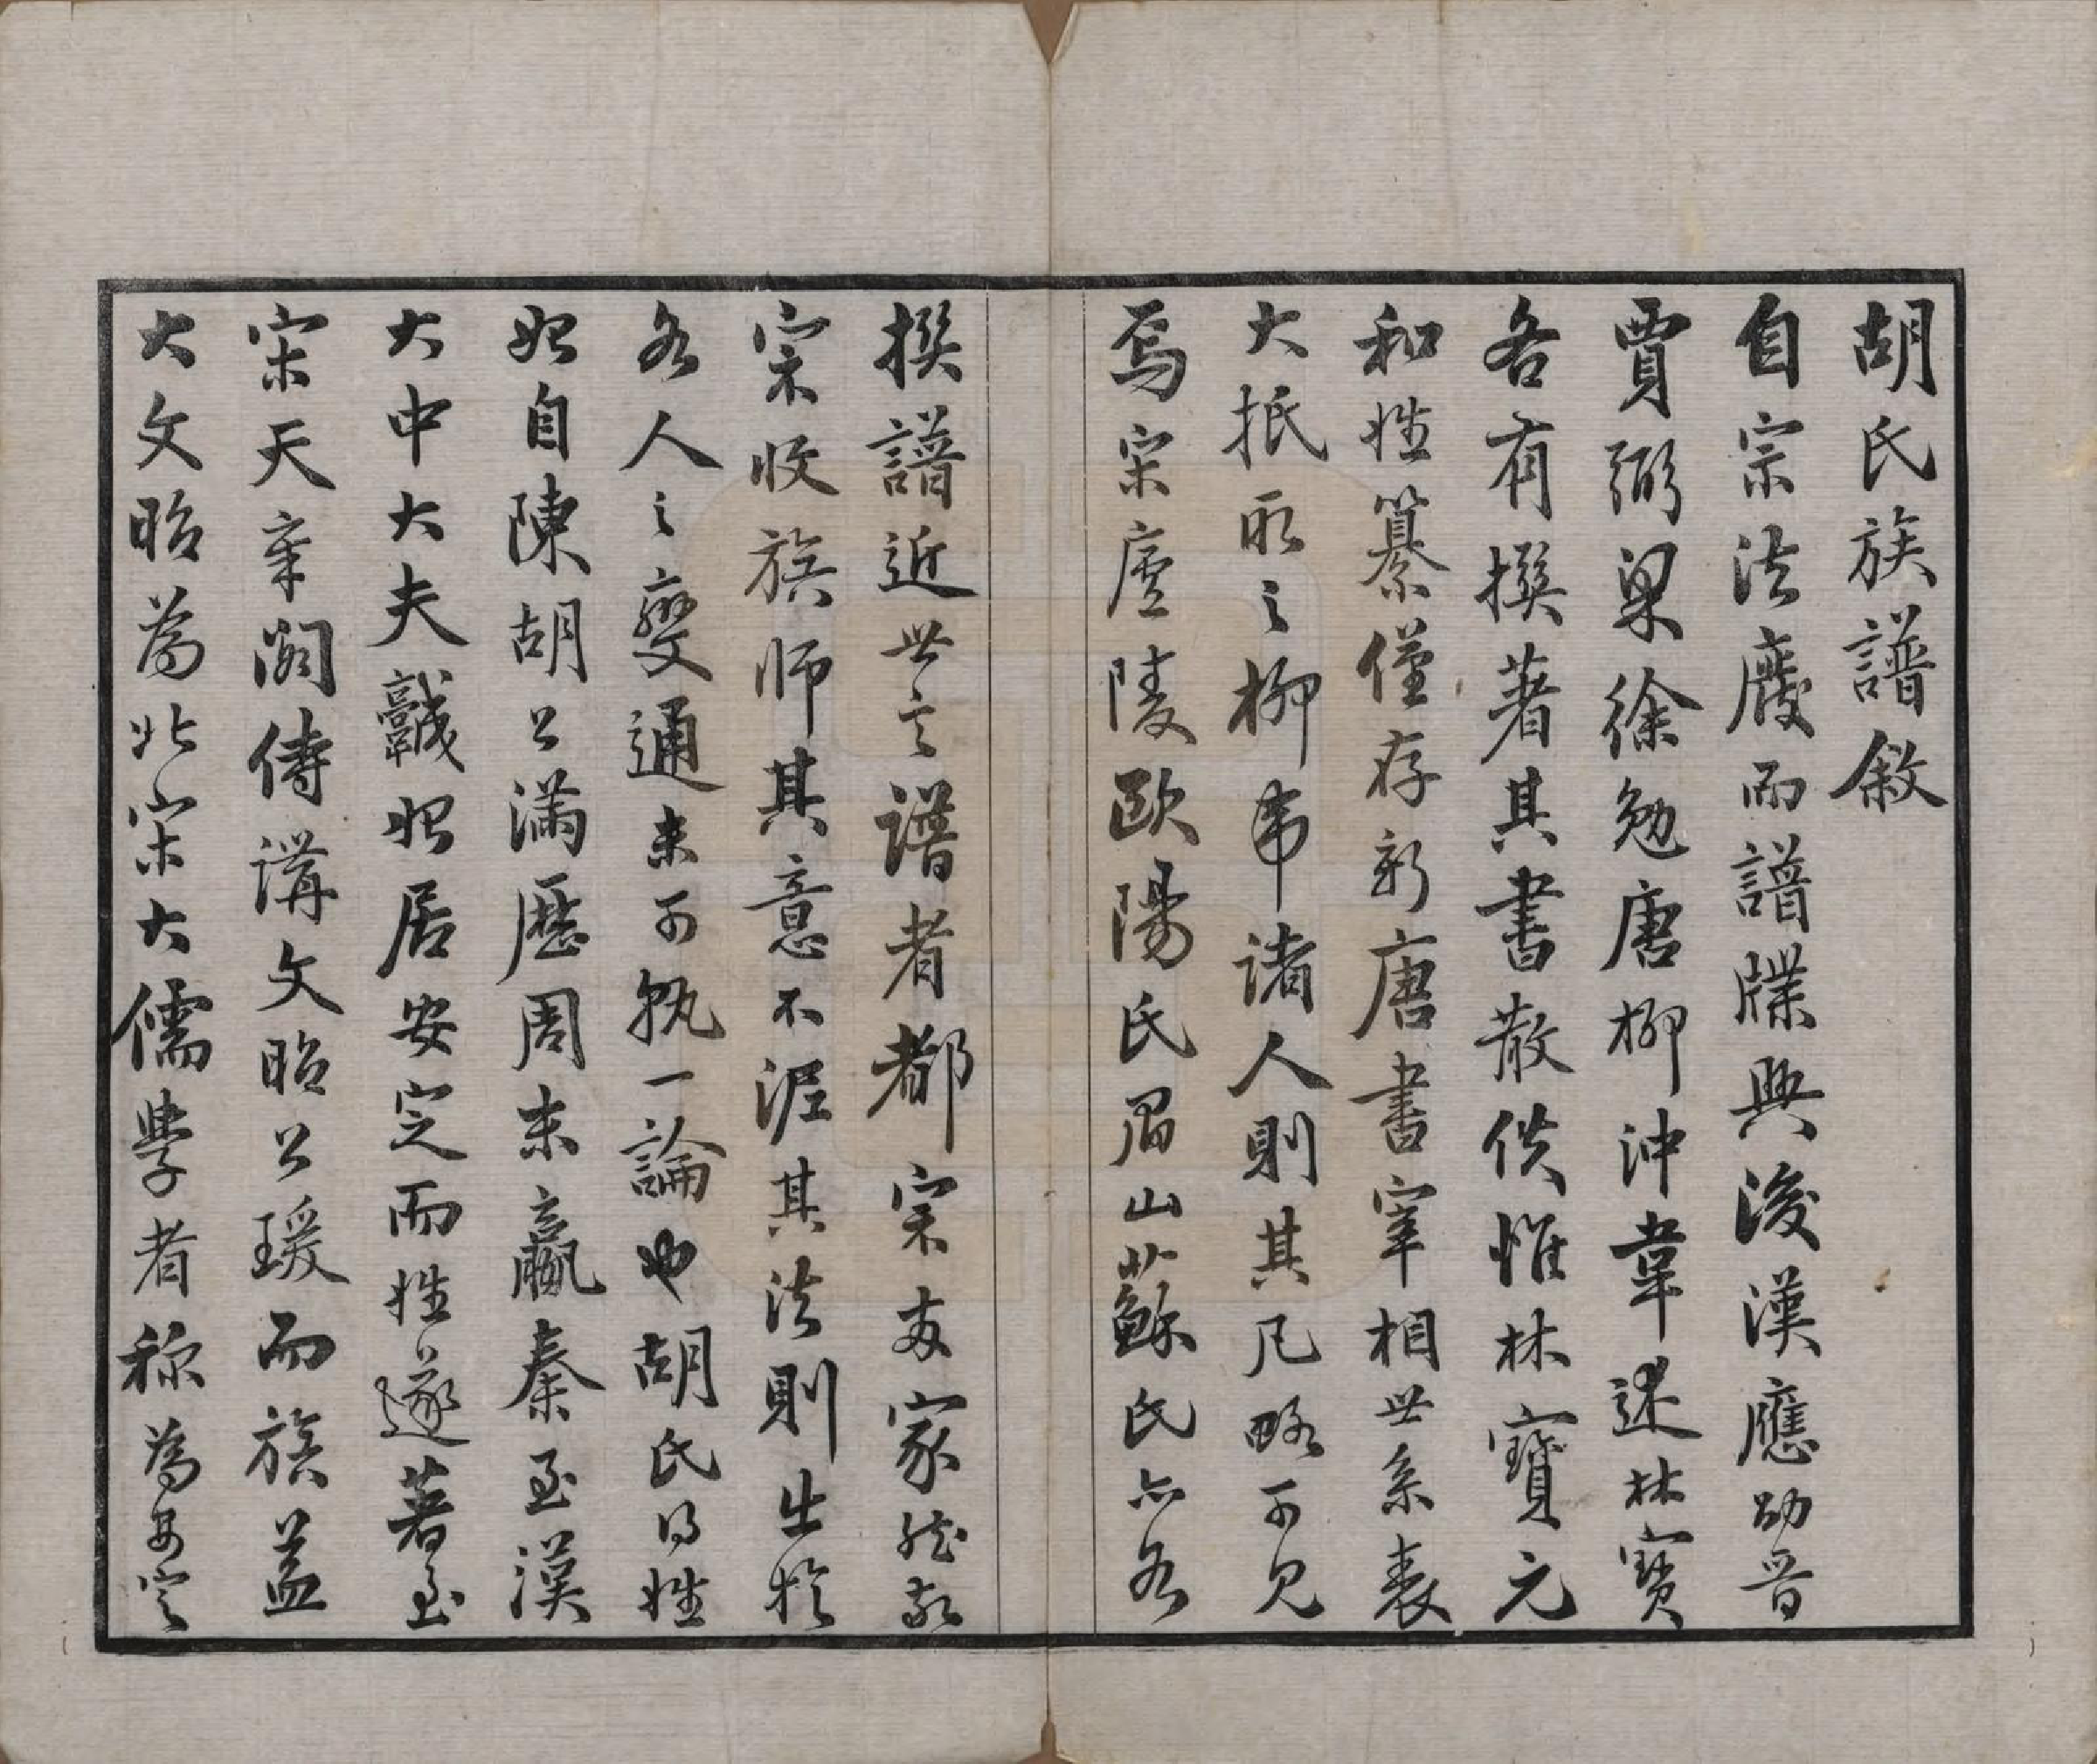 胡氏族譜敘
自宗法廢而譜牒興後漢應劭晉
賈弼梁徐勉唐柳沖韋述林寶
各有撰著其書散佚惟林寶元
和姓纂僅存新唐書宰相世系表
大抵取之柳韋諸人則其凡略可見
焉宋廬陵歐陽氏眉山蘇氏亦各
撰譜近世言譜者都宗两家然敬
宗收族師其意不泥其法則出於
各人之變通未可執一論也胡氏得姓
始自陳胡公滿歷周末嬴秦至漢
大中大夫識始居安定而姓遂著至
宋天章閣侍講文昭公瑗而族益
大文昭為北宋大儒學者稱為安定